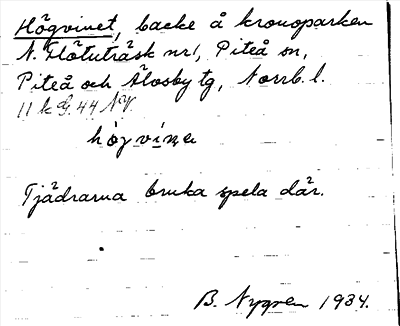 Högvinet, backe å kronoparken
N. Flötuträsk nr 1, Piteå sn,
Piteå och Älvsby tg, Norrb. l.
11 k G. 44 NV.
högvina
Tjädrarna bruka spela där.
B. Nygren 1934.